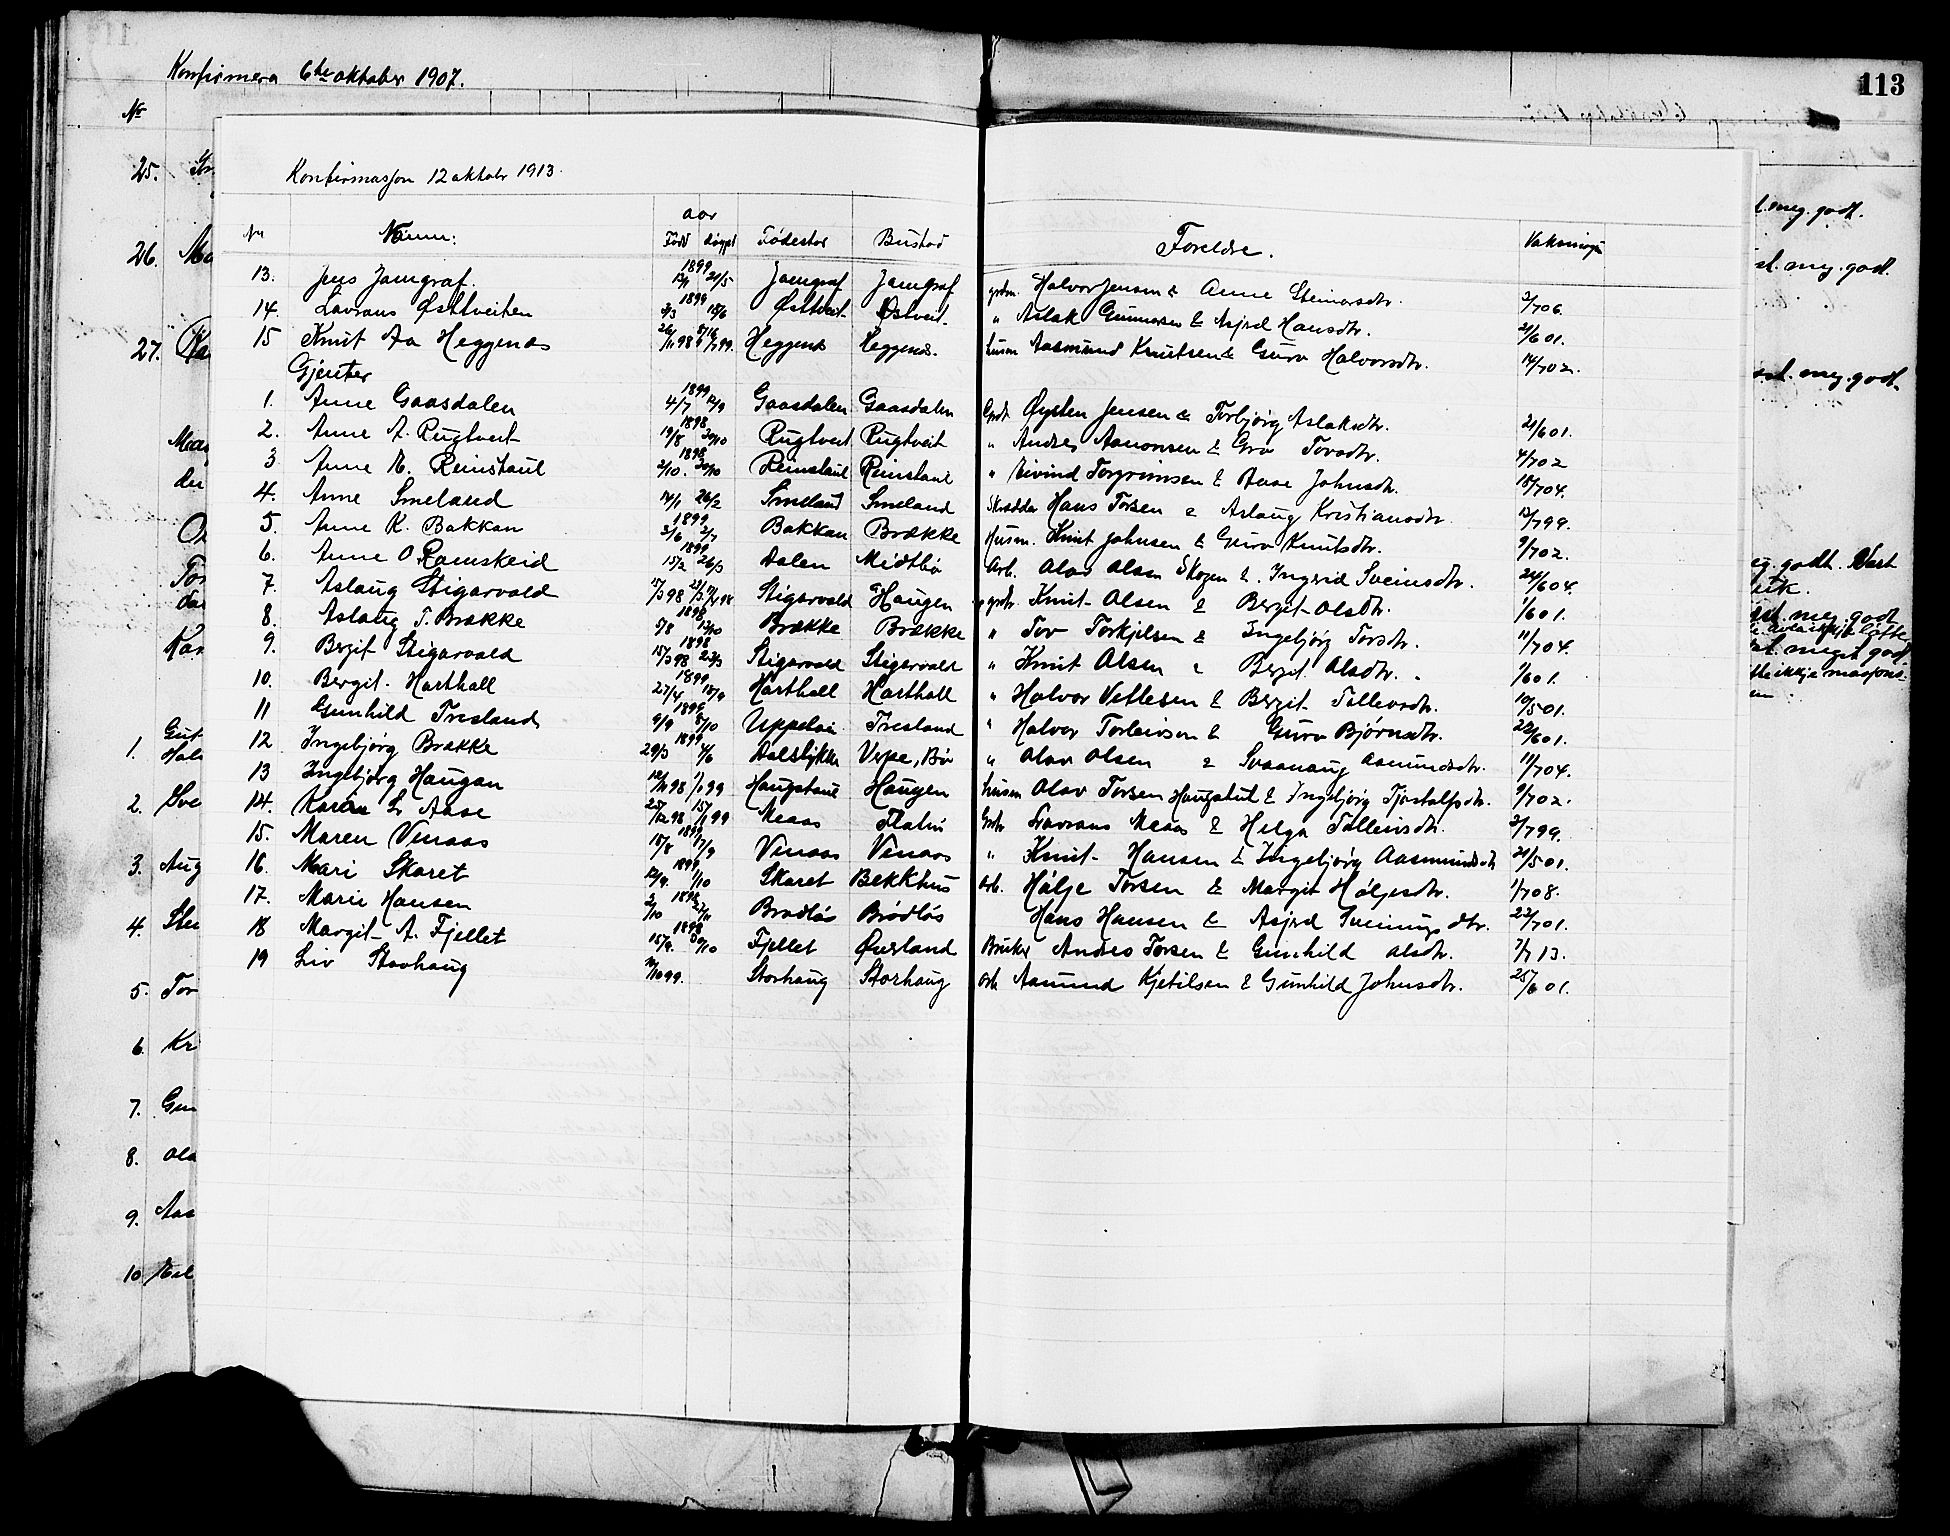 Konfirmera 6te oktober 1907.
113
No
25.
26. Ma
27. Ka
Konfirmasjon 12 oktobr 1913.
No Namn: aar Født døypt Fødestor Bustad Foreldre. Vaksinert
13. Jens Jamgraf. 1899 21/5 Jamgraf Jamgraf grdm. Halvor Jensen & Anne Steinarsdtr. 2/706.
14. Lavrans Østtveiten 3/3 1899 18/6 Østtveit Østveit. " Aslak Gunnarsen & Asjrd Hansdtr. 21/601.
15 Knut Aa Heggenas 26/1198 Heggenes Heggenes. husm Aasmund Knutsen & Guro Halvorsdtr. 14/702.
Gjenter
1. Anne Gaasdalen 4/7 1899 12/9 Gaasdalen Gaasdalen Grdr Øysten Jensen & Torbjørg Aslaksdtr. 21/601.
2. Anne A. Rugtveit 19/8 1898 30/10 Rugtveit Rugtveit " Andres Aanonsen & Gro Torsdtr. 4/702
3 Anne K. Reinstaul 2/10. 1898 30/10 Reinstaul Reinstaul " Eivind Torgrimsen & Aase Johnsdtr. 18/704.
4. Anne Smeland 14/1 26/2 Smeland Smeland Skredder Hans Torsen & Aslaug Kristiansdtr. 12/799.
5. Anne K. Bakkan 3/6 1899 2/7 Bakkan Brække Husm. Knut Johnsen & Guro Knutsdtr. 9/702.
6. Anne O Ramskeid 15/2 1899 26/3 Dalen Midtbø Arb. Olav Olsen Skogen & Ingrid Sveinsdtr. 24/604.
7. Aslaug Stigarvald 15/398 Stigarvald Haugen grdr. Knut Olsen & Bergit Olsdtr. 1/601.
8. Aslaug T. Brække 5/8 1898 12/10 Brække Brække " Tov Torkjelsen & Ingebjørg Torsdtr. 11/704.
9. Bergit Stigarvald 15/398 1898 23/3 Stigarvald Stigarvald " Knut Olsen & Bergit Olsdtr. 1/601.
10. Bergit Harthall 27/4 1899 18/9 Harthall Harthall " Halvor Vetlesen & Bergit Tallevsdtr. 10/501.
11 Gunhild Tresland 9/9 1898 8/10 Uppebøen Tresland " Halvor Torleivsen & Guro Bjørnsdtr. 20/601.
12 Ingebjørg Brække 29/3 1899 4/6 Dalslykkja Vepe, Bø " Olav Olsen & Svanaug Aamundsdtr. 11/704.
13 Ingebjørg Haugan 12/1198 1/199 Haugstaul Haugen husm Olav Torsen Haugstul & Ingebjørg Tjostolfsdtr. 9/702.
14. Karin L. Aase 25/1298 15/199 Meaas Flatin Grdr Lavrans Meaas & Helga Talleivsdtr. 2/799.
15. Maren Vinaas 18/8 1899 17/9 Vinaas Vinaas " Knut Hansen & Ingebjørg Aasmundsdtr 21/501.
16. Mari Skaret 12/9. 1899 1/10 Skaret Bekkhus Arb. Hølje Torsen & Margit Høljesdtr. 1/708.
17. Marie Hansen 2/10 1898 27/11 Brødløs Brødløs Hans Hansen & Asjrd Sveinungsdtr. 22/701.
18 Margit A. Fjellet 15/9. 1898 30/10 Fjellet Øverland Bruker Andres Torsen & Gunhild Olsdtr. 7/713.
19 Liv Storhaug 1099. Storhaug Storhaug Arb Aamund Kjetilsen & Gunhild Johnsdtr. 25/601.
Mar
der
Tor
dar
Kar
Gut
1. Hal
2. Sve
3. Aug
4. Ste
5. Tor
6. Kr
7. Gun
8. Ola
9. Aas
10
t. meg. godt.
st. meg. godt.
st. meg. godt.
eg. godt. Vast
sik.
st. meg. godt
st. meget godt